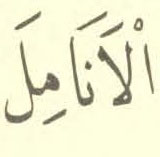 الْأَنَامِلَ